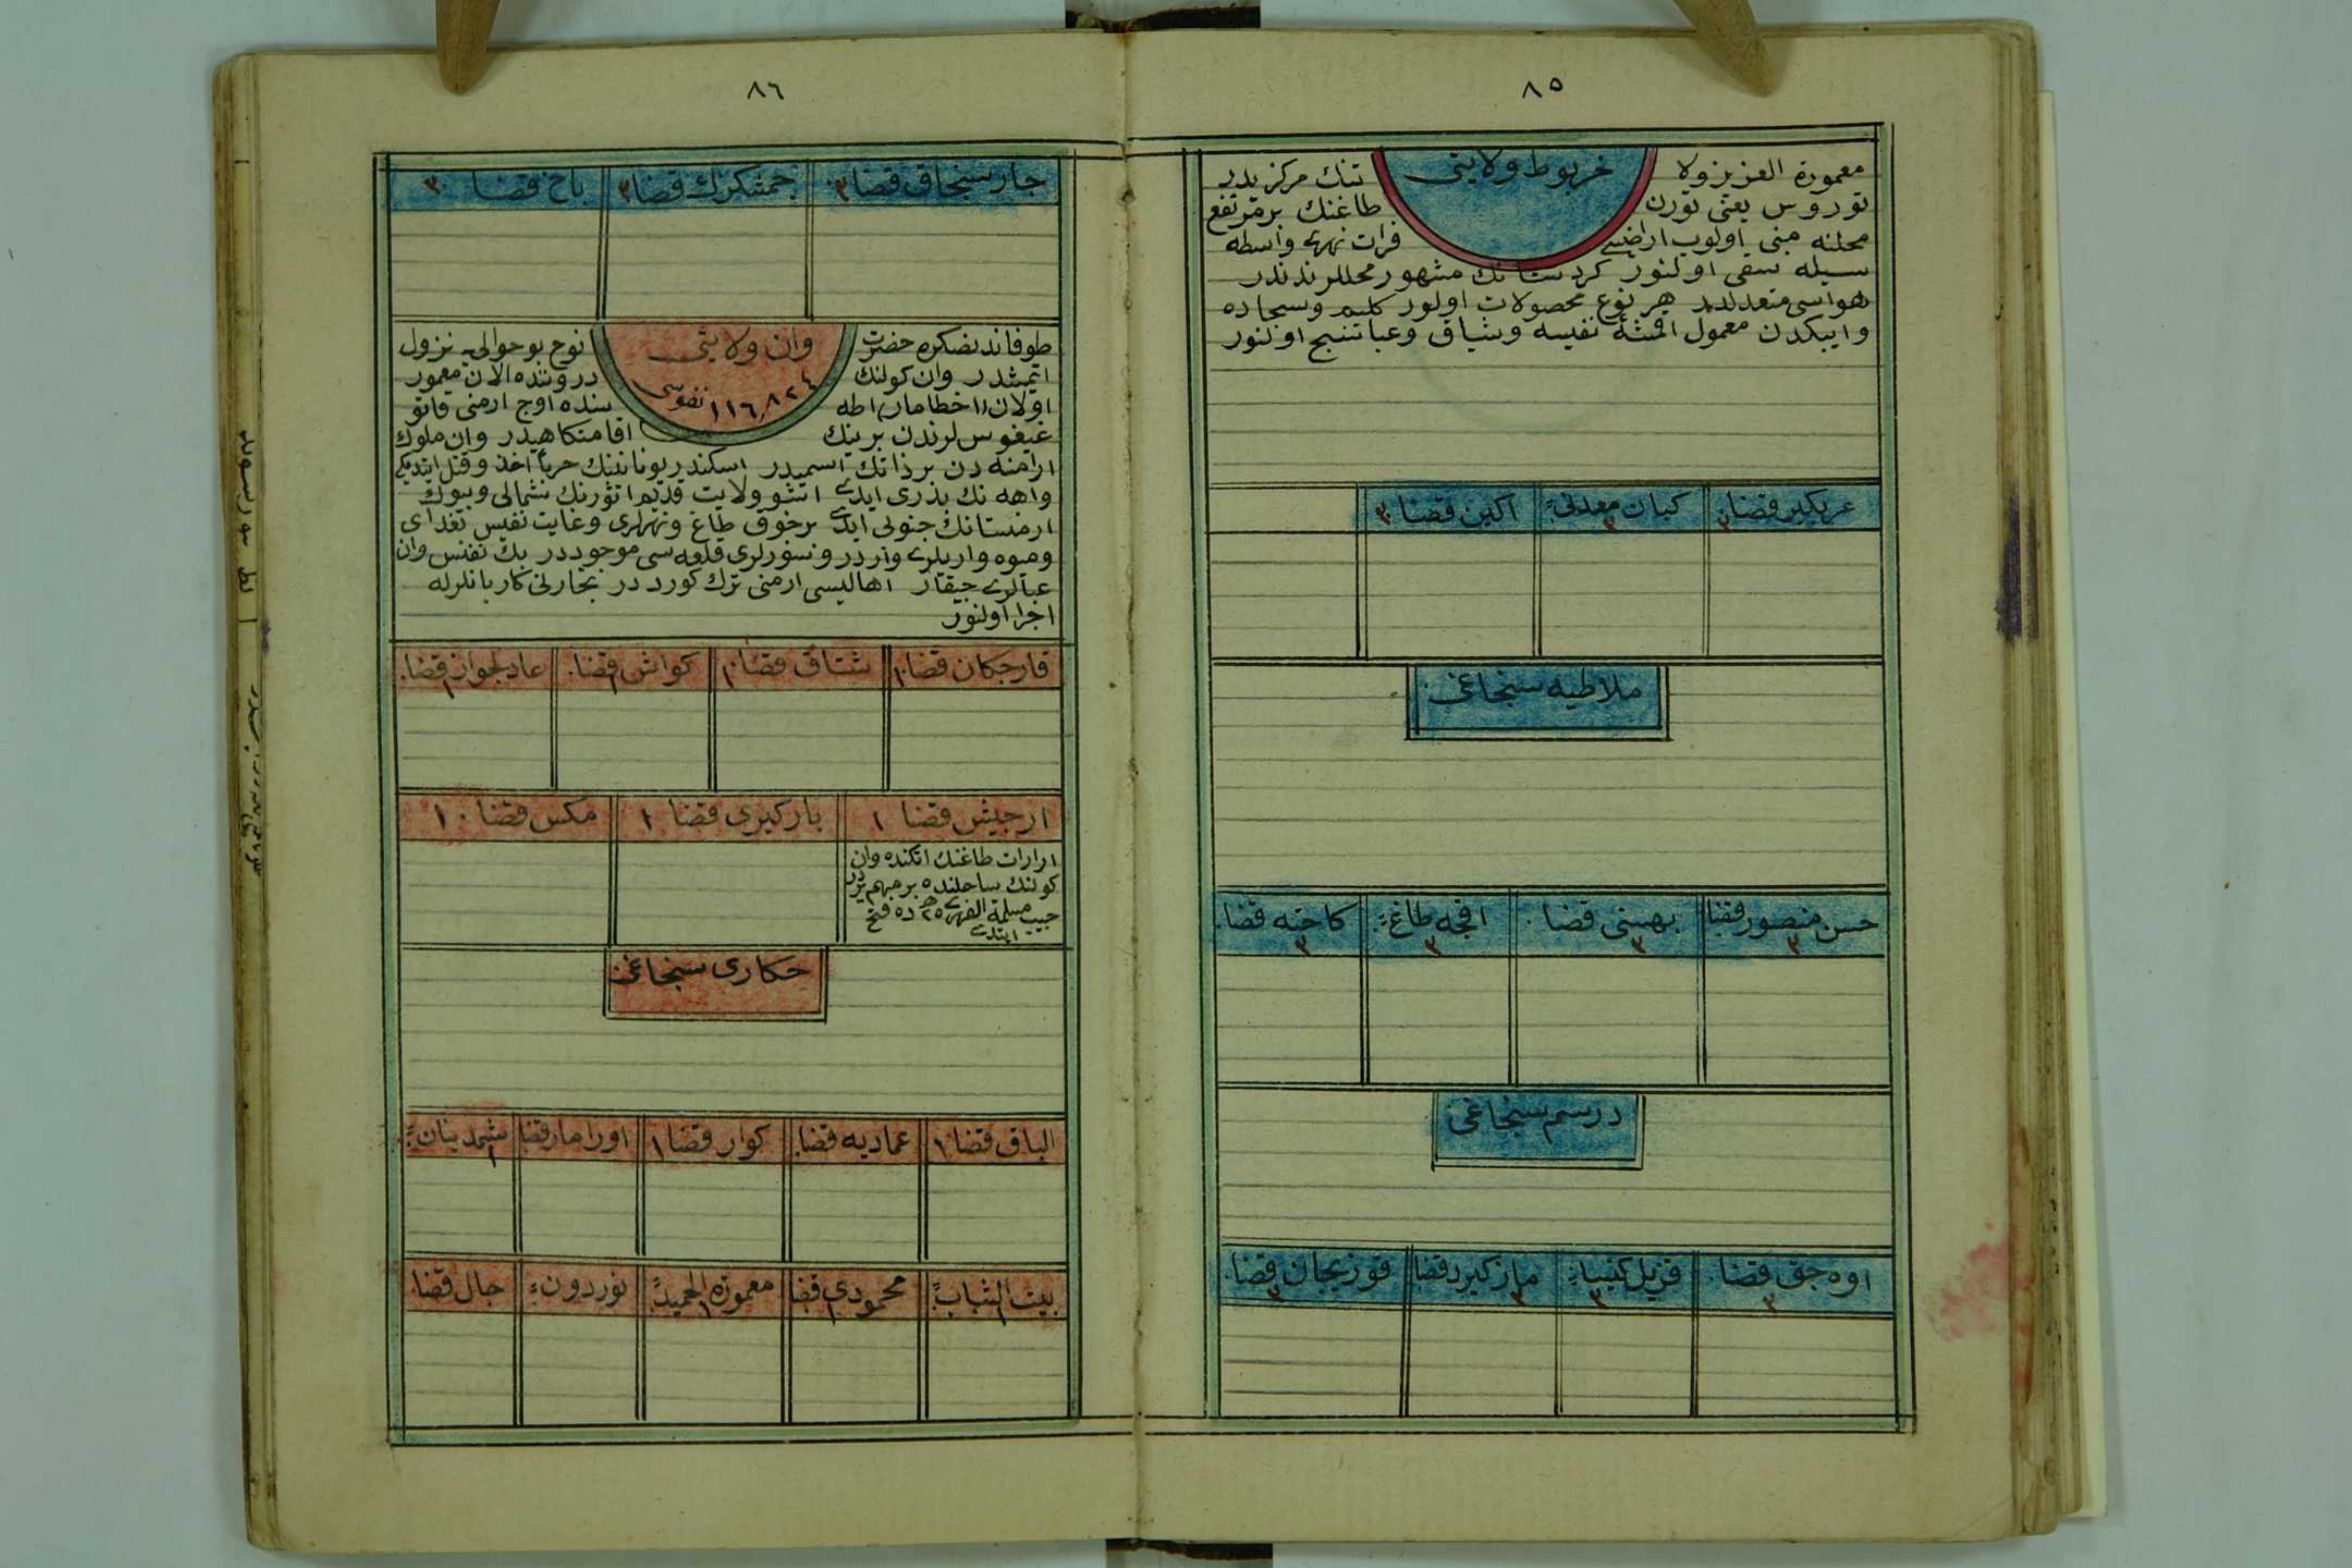 ٨٥
خربوط ولايتى
معمورة العزيز ولا يتنك مركزيدر
توروس يعنى تورن طاغنك بر مرتفع
محلنه مبنى اولوب اراضيسى فرات نهرى واسطه
سيله سقى اولنور كردستانك مشهور محللرندندر
هواسى معتدلدر هر نوع محصولات اولور كليم وسجاده
وايپكدن معمول اقمشهٔ نفيسه وشياق وعبا نسج اولنور
عربكير قضا ٣ كبان معدنى ٣ اكين قضا ٣
ملاطيه سنجاغى
حسن منصور قضا ٣ بهسنى قضا ٣ اقچه طاغ ٣ كاخته قضا ٣
درسم سنجاغى
اوه جق قضا ٣ قزيل كيسا ٣ مازكيرد قضا ٣ قوزيجان قضا ٣
٨٦
چارسنجاق قضا ٣ چمشكزك قضا ٣ پاخ قضا ٣
وان ولايتى
١١٦,٨٢٤ نفوسى
طوفاندنصكره حضرت نوح بو حوالى يه نزول
ايتمشدر وان كولنك دروننده الآن معمور
اولان (اخطامار) اطه سنده اوچ ارمنى قاتو
غيقوس لرندن برينك اقامتكاهيدر وان ملوك
ارامنه دن بر ذاتك اسميدر اسكندر يونانينك حرباً اخذ وقتل ايتديكى
واهه نك پدرى ايدى اشو ولايت قديم اثورنك شمالى وبيوك
ارمنستانك جنوبى ايدى برچوق طاغ ونهرلرى وغايت نفيس بغداى
وميوه واريلرى واردر وسورلرى قلعه سى موجوددر پك نفيس وان
عبالرى چيقار اهاليسى ارمنى ترك كورددر تجارتى كاربانلرله
اجرا اولنور
قارجكان قضا ١ شتاق قضا ١ كواش قضا ١ عادلجواز قضا ١
ارجيش قضا ١ باركيرى قضا ١ مكس قضا ١
ارارات طاغنك اتكنده وان
كولنك ساحلنده بر مهم يردر
حبيب مسلمة الفهرى ٢٥ ده فتح
ايتدى
حكارى سنجاغى
الباق قضا ١ عماديه قضا كوار قضا ١ اورامار قضا شمدينان ١
بيت الشباب ١ محمودى قضا ١ معمورة الحميد ١ نوردوز چال قضا